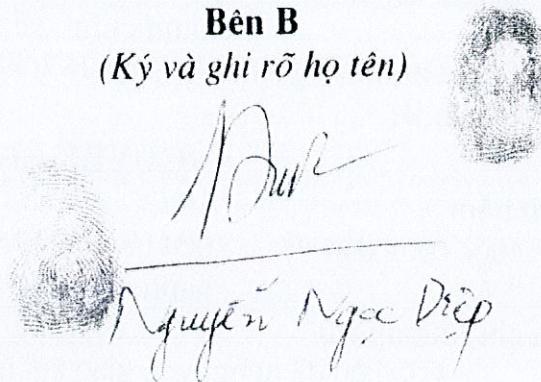 Bên B
(Ký và ghi rõ họ tên)
Nguyễn Ngọc Diệp